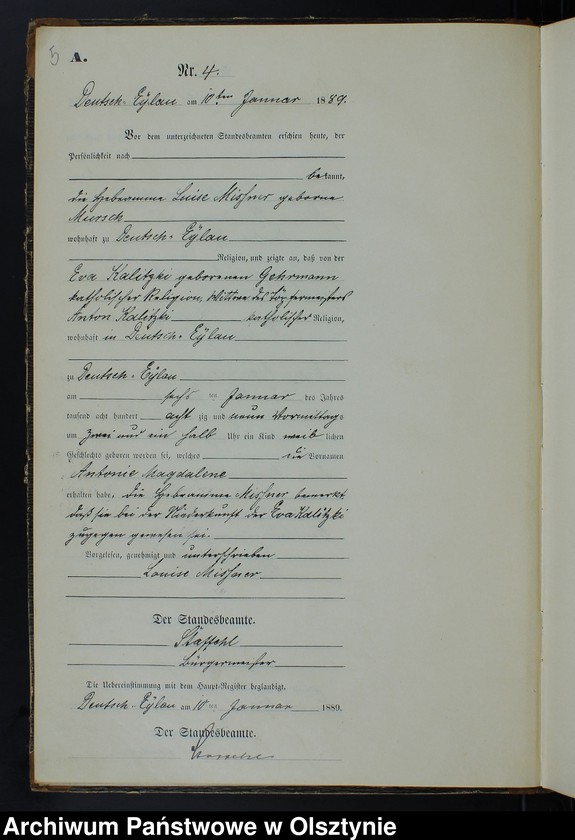 5 A.
Nr. 4.
Deutsch-Eylau am 10ten Januar 1889.
Vor dem unterzeichneten Standesbeamten erschien heute, der
Persönlichkeit nach
bekannt,
die Hebeamme Luise Missner geborne
Muersch
wohnhaft zu Deutsch-Eylau
Religion, und zeigte an, daß von der
Eva Kalitzki geborenen Gehrmann
katholischer Religion, Wittwe des Töpfermeisters
Anton Kalitzki katholischer Religion,
wohnhaft in Deutsch-Eylau
zu Deutsch-Eylau
am sechs ten Januar des Jahres
tausend acht hundert acht zig und neun Vormittags
um zwei und ein halb Uhr ein Kind weib lichen
Geschlechts geboren worden sei, welches die Vornamen
Antonie Magdalene
erhalten habe. Die Hebeamme Missner bemerkt
daß sie bei der Niederkunft der Eva Kalitzki
zugegen gewesen sei.
Vorgelesen, genehmigt und unterschrieben
Louise Missner
Der Standesbeamte.
Staffehl
Bürgermeister
Die Uebereinstimmung mit dem Haupt-Register beglaubigt.
Deutsch-Eylau am 10ten Januar 1889.
Der Standesbeamte.
Archiwum Państwowe w Olsztynie